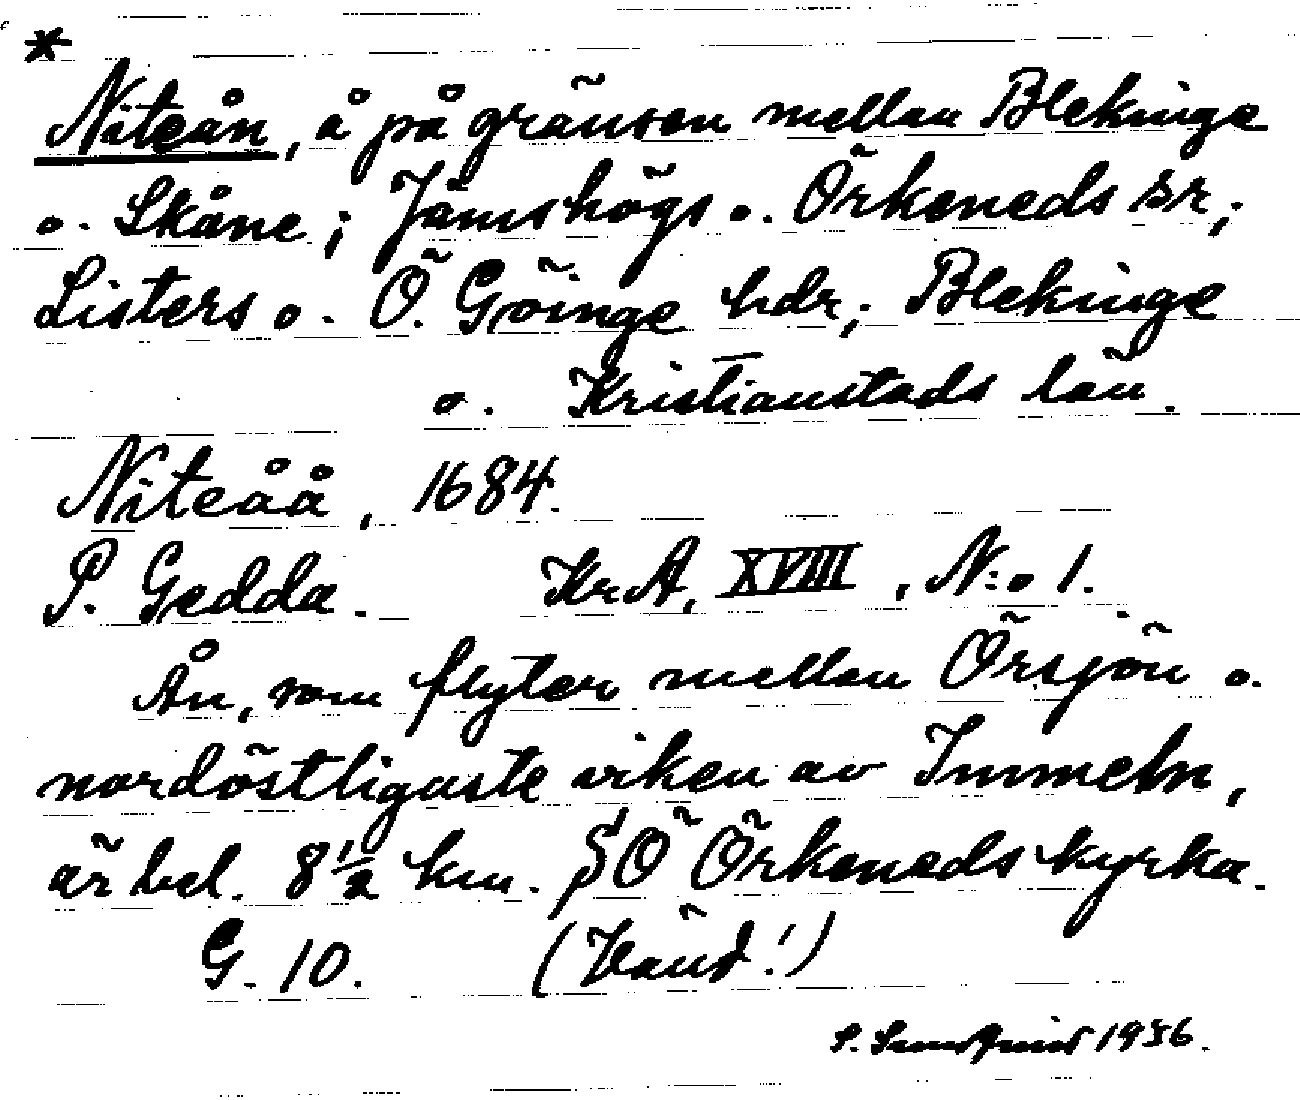 *
Niteån, å på gränsen mellan Blekinge
o. Skåne; Jämshögs o. Örkeneds sr;
Listers o. Ö. Göinge hdr; Blekinge
o. Kristianstads län.
Niteåå, 1684.
P. Gedda. Kr.A, XVIII, N:o 1.
Ån, som flyter mellan Örsjön o.
nordöstligaste viken av Immeln,
är bel. 8 1/2 km. SÖ Örkeneds kyrka.
G. 10. (Vänd!)
S. Sundqvist 1936.